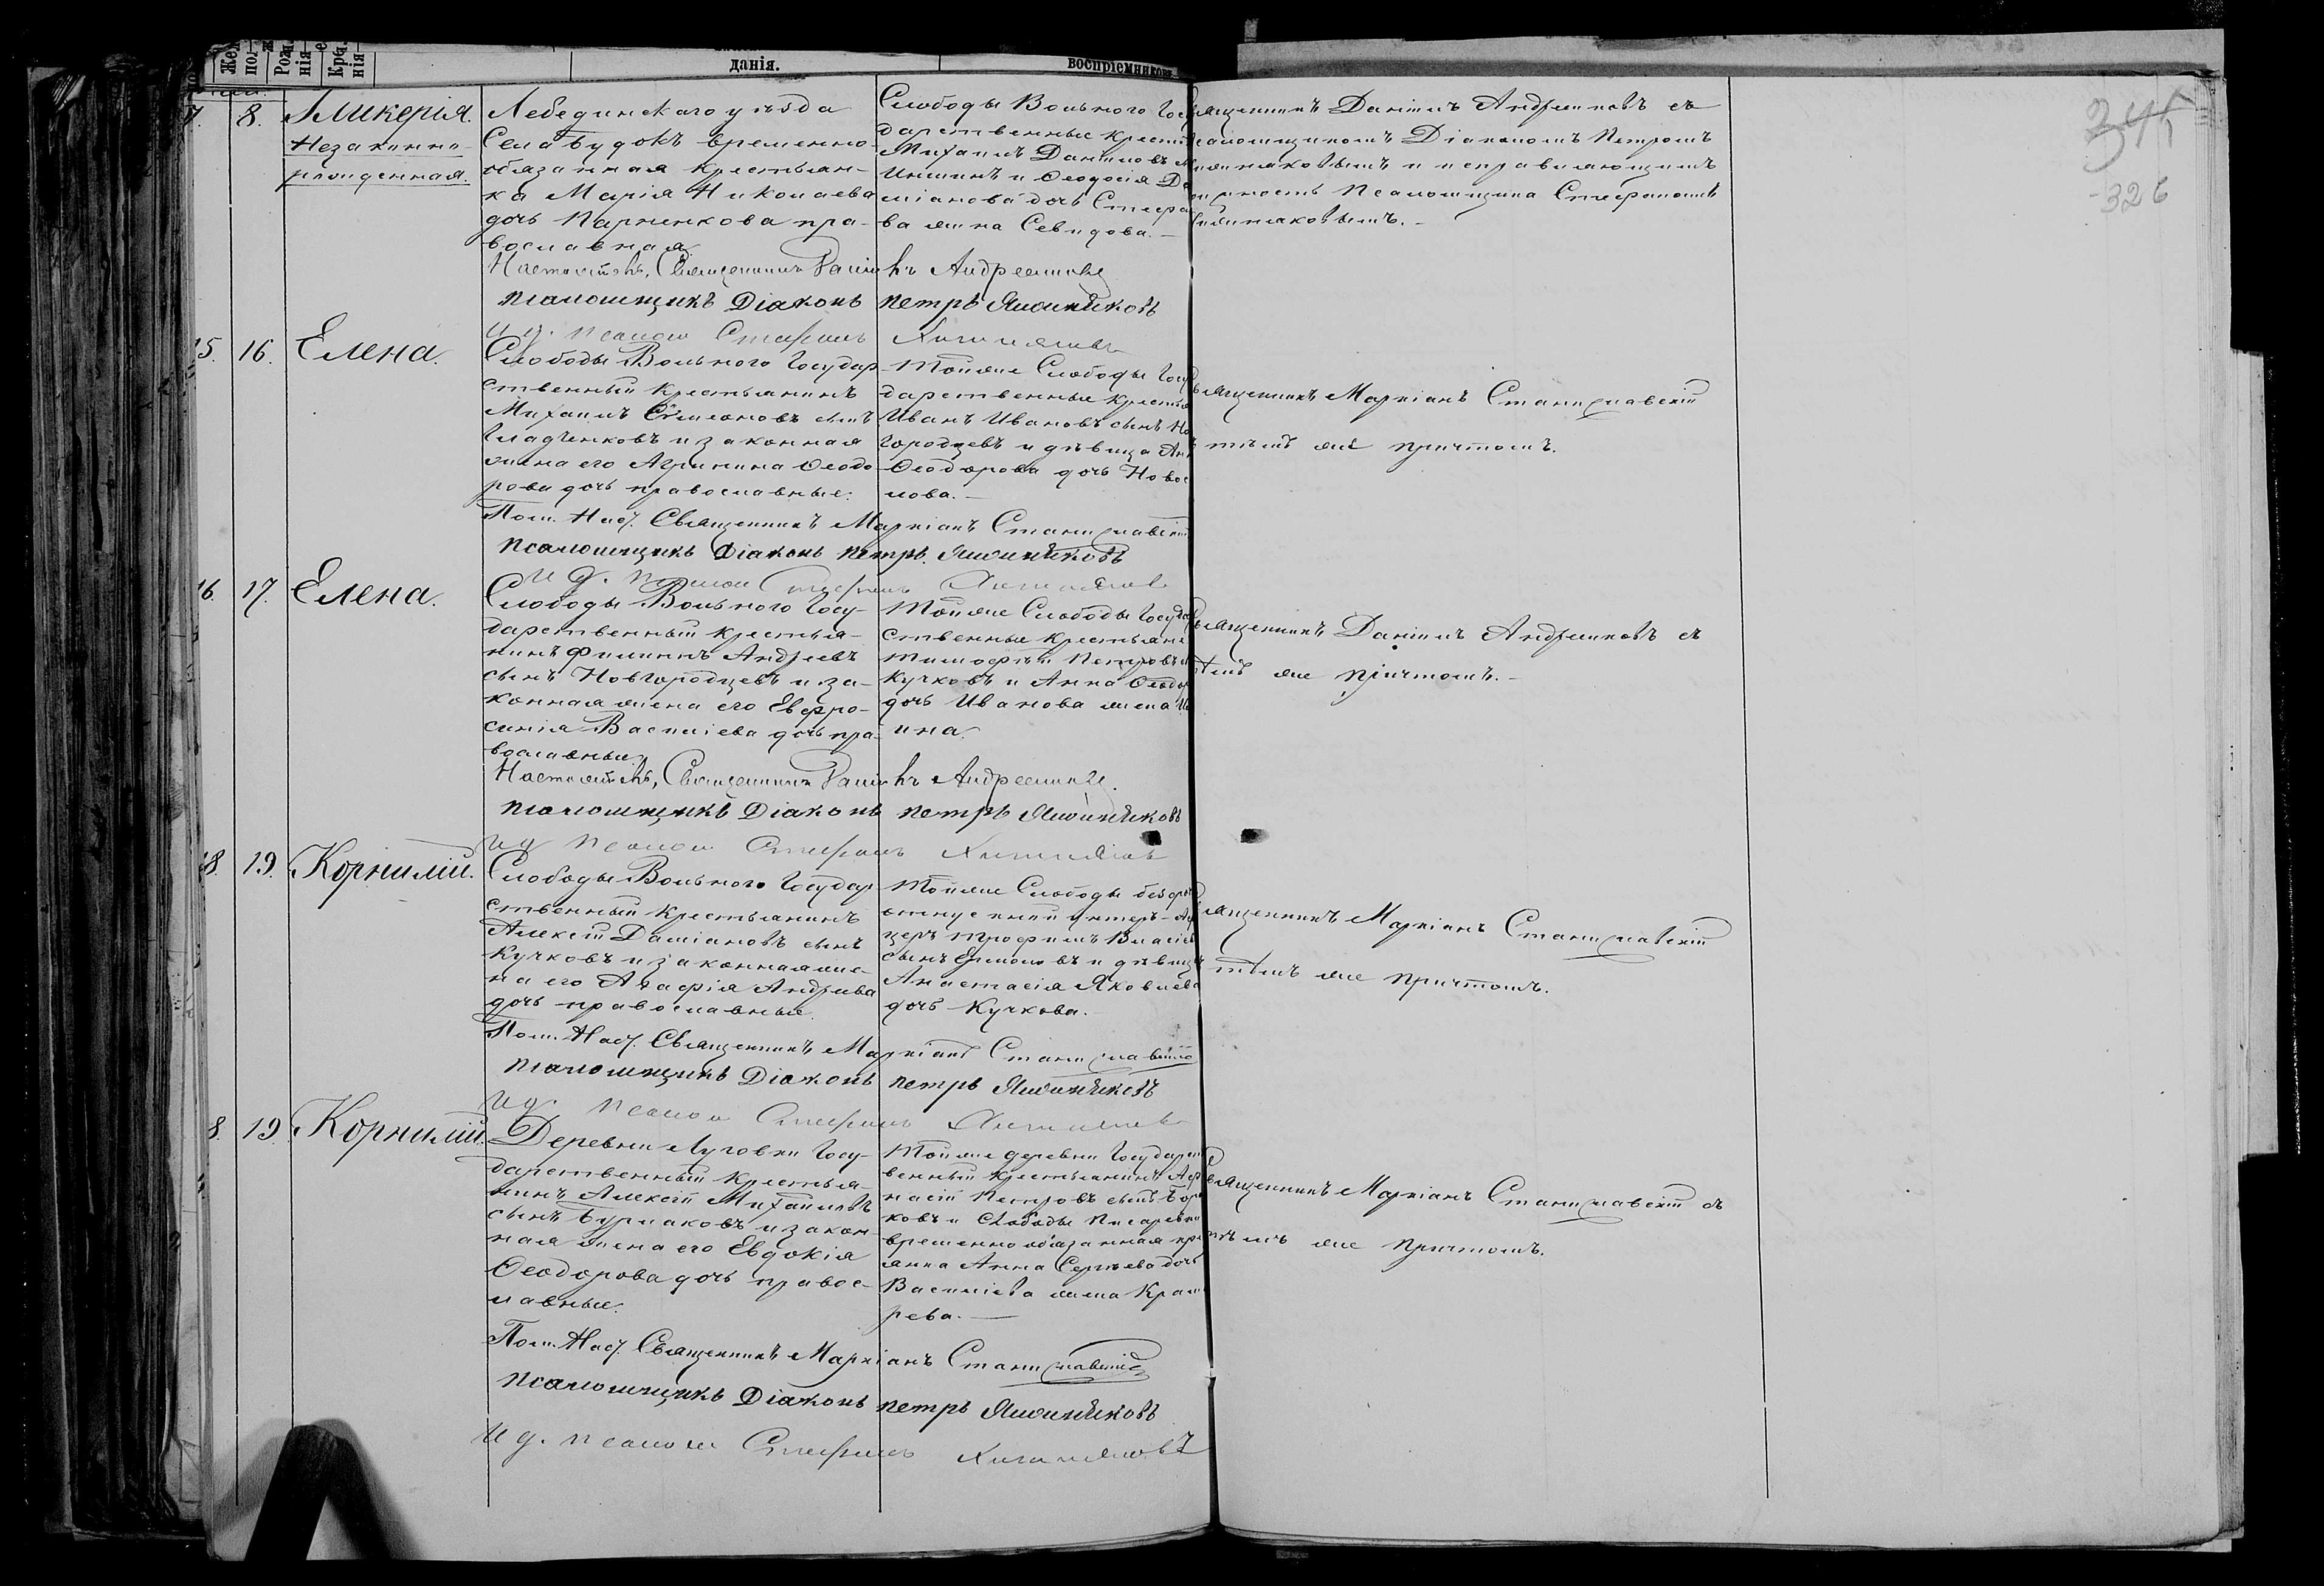 Жен
пол
Рож
нія
Кре
нія
данія.
воспріемниковъ
7. 8. Гликерія.
Незаконно-
рожденная.
Лебединскаго уѣзда
Села Будокъ временно-
обязанная крестьян-
ка Марія Николаева
дочь Парченкова пра-
вославная
Слободы Вольного Госу
дарственные кресть
Михаилъ Даніиловъ
и Ѳеодосія Да
міанова дочь Стефа
ва жена Севидова.
Священникъ Даніилъ Андреенковъ съ
Псаломщикомъ Діакономъ Петромъ
и исправляющимъ
должность Псаломщика Стефаномъ
Настоятель, Священникъ Даніилъ Андреенковъ
Псаломщикъ Діаконъ Петръ
И. д. Псалом Стефанъ
15. 16. Елена.
Слободы Вольного Государ
ственный крестьянинъ
Михаилъ Симеоновъ сынъ
Гладченковъ и законная
жена его Агрипина Ѳеодо
рова дочь православные.
Тойже Слободы Госу
дарственные крестья
Иванъ Ивановъ сынъ Но
городцевъ и дѣвица Ан
Ѳеодорова дочь Новос
лова.
Священникъ Маркіанъ Станиславскій
тѣмъ же причтомъ.
Пом. Наст. Священникъ Маркіанъ Станиславскій
Псаломщикъ Діаконъ Петръ
И. д. Псалом Стефанъ
16. 17. Елена.
Слободы Вольного Госу-
дарственный крестья-
нинъ Филиппъ Андреевъ
сынъ Новгородцевъ и за-
конная жена его Евфро-
синія Василіева дочь пра-
вославные
Тойже Слободы Госуда
ственные крестьяне
Тимофей Петровъ
Кучковъ и Анна Ѳеодо
дочь Иванова жена
ина.
Священникъ Даніилъ Андреенковъ съ
тѣмъ же причтомъ.
Настоятель, Священникъ Даніилъ Андреенковъ
Псаломщикъ Діаконъ Петръ
И д Псалом Стефанъ
18. 19. Корнилій.
Слободы Вольного Государ
ственный крестьянинъ
Алексѣй Даміановъ сынъ
Кучковъ и законная же-
на его Агафія Андреева
дочь православные.
Тойже Слободы безсро
отпускной унтеръ-оф
церъ Трофимъ Власіев
сынъ Ермоловъ и дѣвица
Анастасія Яковлева
дочь Кучкова.
Священникъ Маркіанъ Станиславскій
тѣмъ же причтомъ.
Пом. Наст. Священникъ Маркіанъ Станиславскій
Псаломщикъ Діаконъ Петръ
И д. Псалом Стефанъ
8. 19 Корнилій.
Деревни Луговки Госу-
дарственный крестья-
нинъ Алексѣй Михаиловъ
сынъ Бурлаковъ и закон
ная жена его Евдокія
Ѳеодорова дочь правос-
лавные.
Тойже деревни Государст
венный крестьянинъ Аѳа
насій Петровъ сынъ
ковъ и Слободы Писаревки
временно обязанная кре
янка Анна Сергѣева дочь
Василіева жена Крам
рева.
Священникъ Маркіанъ Станиславскій съ
тѣмъ же причтомъ.
Пом. Наст. Священникъ Маркіанъ Станиславскій
Псаломщикъ Діаконъ Петръ
И д. Псалом Стефанъ
326